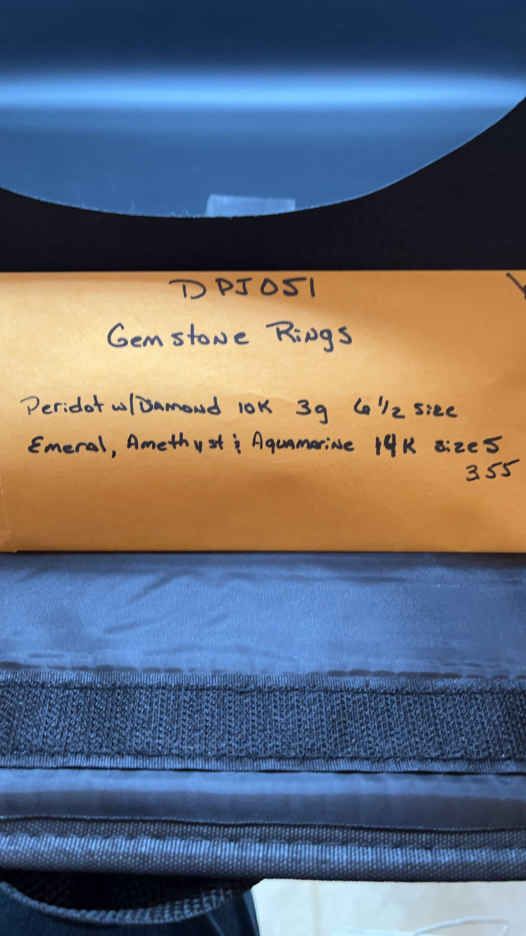 DPJ051
Gemstone Rings
Peridot w/Damond 10K 3g 6 1/2 size
Emeral, Amethyst & Aquamarine 14K size 5
3.55